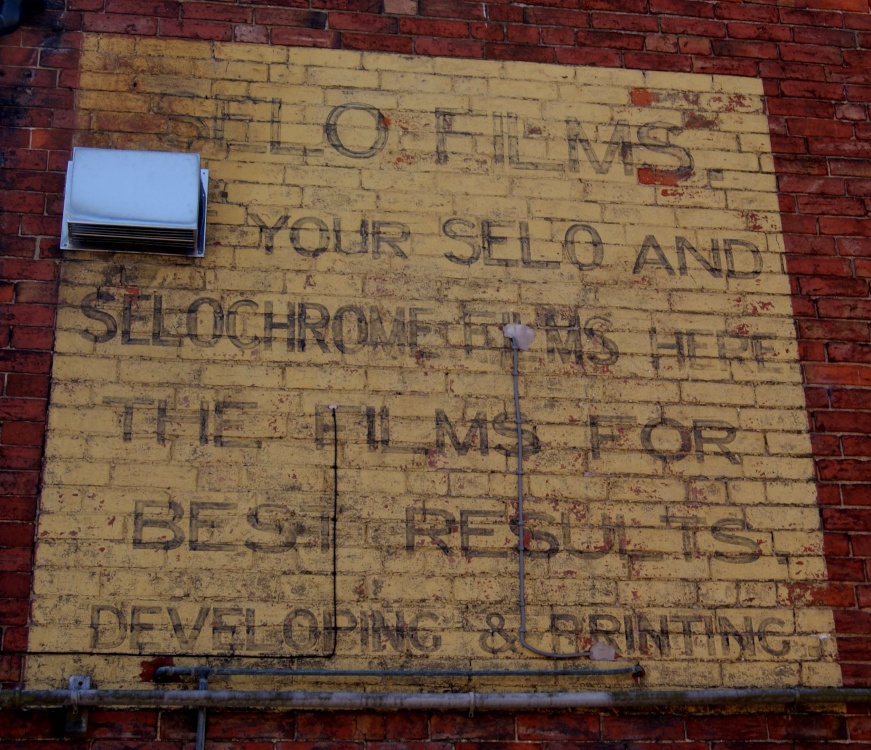 SELO FILMS.
YOUR SELO AND
SELOCHROME FILMS HERE
THE FILMS FOR
BEST RESULTS.
DEVELOPING & PRINTING